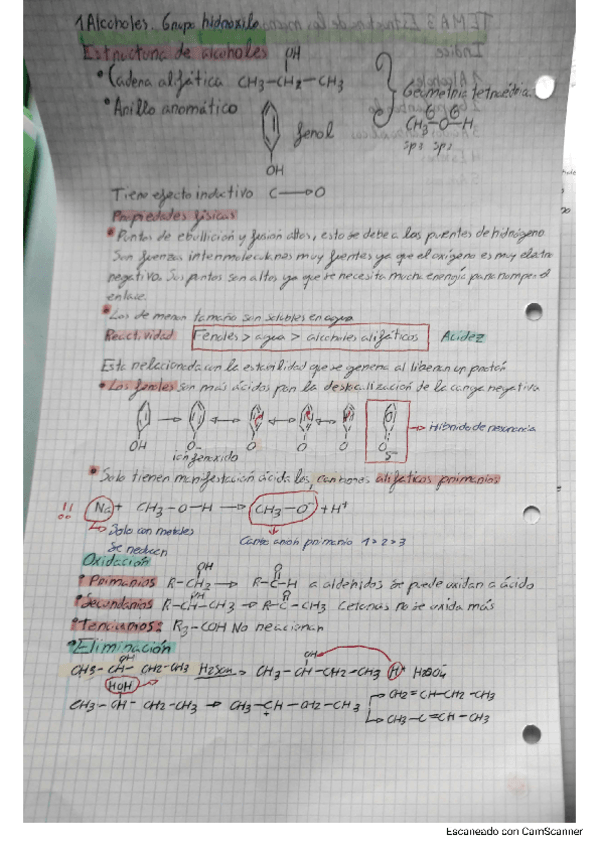 1. Alcoholes. Grupo hidroxilo
Estructura de alcoholes
OH
• Cadena alifática CH3-CH2-CH3
Geometría tetraédrica
• Anillo aromático
fenol
CH3-O-H
sp3 sp3
OH
Tiene efecto inductivo C→O
Propiedades físicas
• Puntos de ebullición y fusión altos, esto se debe a los puentes de hidrógeno
Son fuerzas intermoleculares muy fuertes ya que el oxígeno es muy electro
negativo. Sus puntos son altos ya que se necesita mucha energía para romper el
enlace.
• Los de menor tamaño son solubles en agua
Reactividad Fenoles > agua > alcoholes alifáticos Acidez
Esta relacionada con la estabilidad que se genera al liberar un protón
• Los fenoles son más ácidos por la deslocalización de la carga negativa
Híbrido de resonancia
OH O- O O O O
δ-
ion fenóxido
• Solo tienen manifestación ácida los carbonos alifáticos primarios
!! Na + CH3-O-H → CH3-O- + H+
Solo con metales
se reducen
anión primario 1>2>3
Oxidación
OH O
• Primarios R-CH2 → R-C-H a aldehidos se puede oxidar a ácido
OH O
• Secundarios R-CH-CH3 → R-C-CH3 Cetonas no se oxida más
• Terciarios: R3-COH No reaccionan
• Eliminación
OH OH
CH3-CH-CH2-CH3 H2SO4 → CH3-CH-CH2-CH3 H+
HOH
CH2=CH-CH2-CH3
CH3-CH-CH2-CH3 → CH3-CH-CH2-CH3
+
CH3-C=CH-CH3
Escaneado con CamScanner